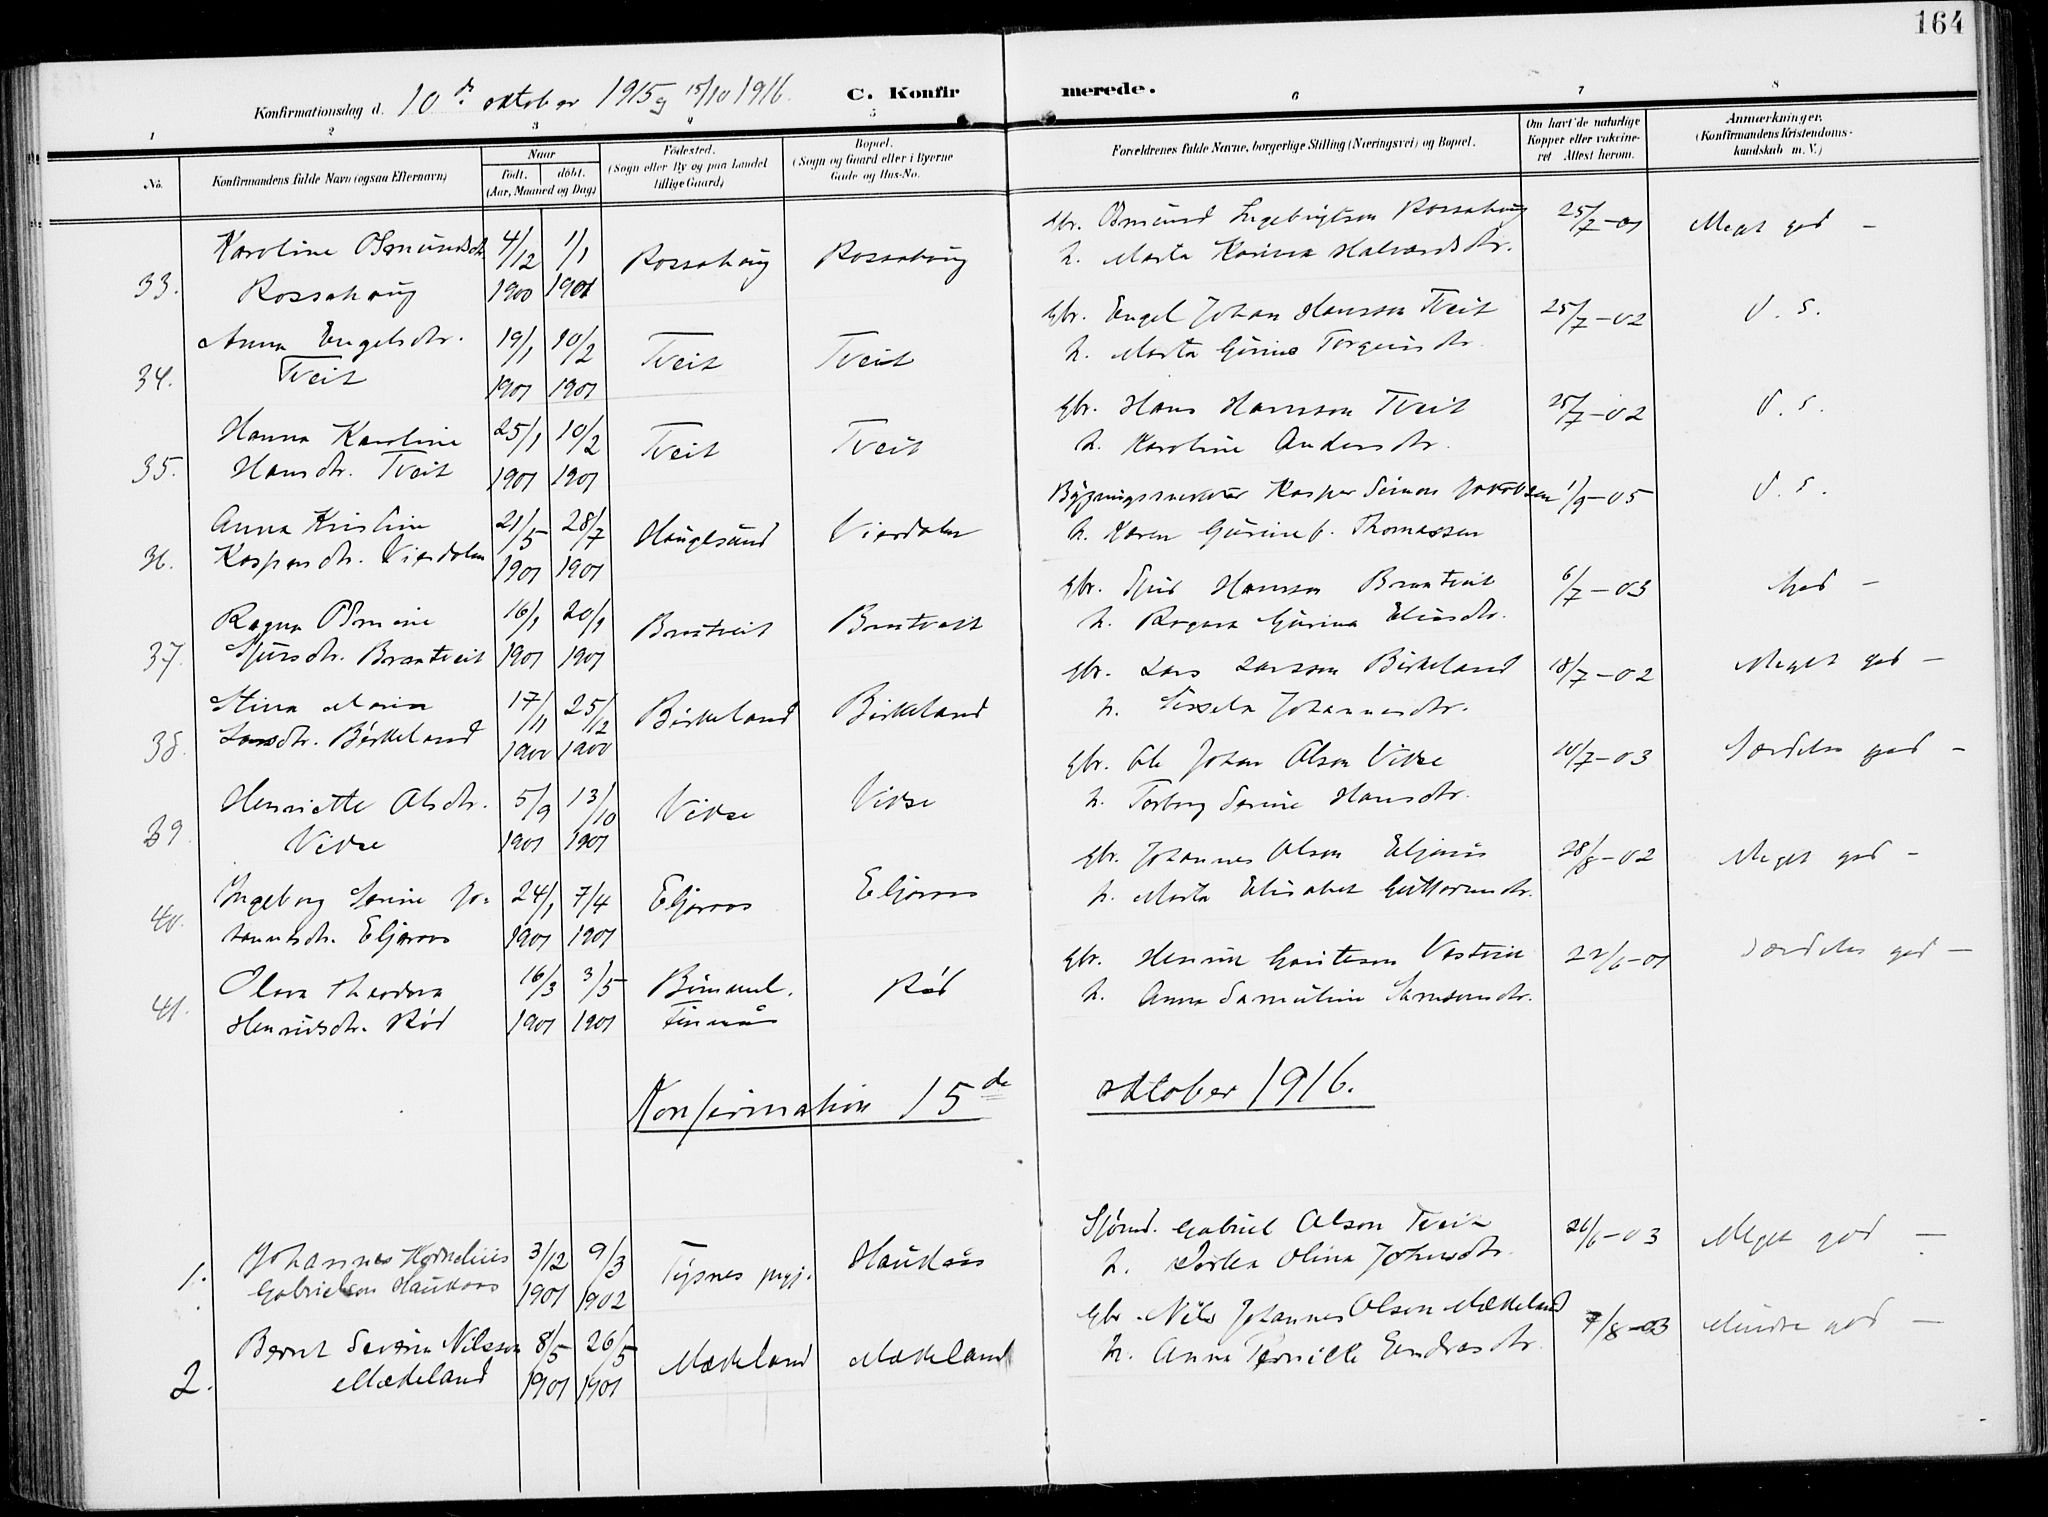 164
Konfirmationsdag d. 10de oktober 1915 og 15/10 1916. C. Konfirmerede.
1 2 3 4 5 6 7 8
No. Konfirmandens fulde Navn (ogsaa Efternavn)
Naar født. døbt. (Aar, Maaned og Dag)
Fødested. (Sogn eller By og paa Landet tillige Gaard)
Bopæl. (Sogn og Gaard eller i Byerne Gade og Hus-No.
Forældrenes fulde Navne, borgerlige Stilling (Næringsvei) og Bopæl.
Om havt de naturlige Kopper eller vakcineret Attest herom.
Anmærkninger. (Konfirmandens Kristendomskundskab m. V.)
33. Karoline Osmundsdtr. Rossehaug 4/12 1900 1/1 1901 Rossehaug Rossehaug
Gbr. Osmund Ingebrigtson Rossehaug
h. Marta Karina Halvardsdtr. 25/7-01 Meget god -
34. Anna Engelsdtr. Tveit 19/1 1901 10/2 1901 Tveit Tveit
Gbr. Engel Johan Hansson Tveit
h. Marta Gurine 25/7-02 D. S.
35. Hanna Karoline Hansdtr. Tveit 25/1 1901 10/2 1901 Tveit Tveit
Gbr. Hans Hansson Tveit
h. Karoline Andersdtr. 25/7-02 D. S.
36. Anna Kristine Kaspersdtr. Vierdalen 21/5 1901 28/7 1901 Haugesund Vierdalen
Kasper Simon Jakobsen
h. Karen Gurine f. Thomassen 1/9-05 D. S.
37. Ragna Osmine Sjursdtr. Brantveit 16/1 1901 20/1 1901 Brantveit Brantveit
Gbr. Sjur Hansson Brantveit
h. Ragna Gurina Eliasdtr. 6/7-03 God -
38. Stina Maria Larsdtr. Birkeland 17/11 1900 25/12 1900 Birkeland Birkeland
Gbr. Lars Larsson Birkeland
h. Johannesdtr. 18/7-02 Meget god -
39. Henriette Olsdtr. Vikse 5/9 1901 13/10 1901 Vikse Vikse
Gbr. Ole Johan Olson Vikse
h. Torborg Serine Hansdtr. 10/7-03 Særdeles god -
40. Ingeborg Serine Johannesdtr. Eljarvas 24/1 1901 7/4 1901 Eljarvas Eljarvas
Gbr. Johannes Olson
h. Marta Elisabet Guttormsdtr. 28/8-02 Meget god -
41. Olava Theodora Henriksdtr. Rød 16/3 1901 3/5 1901 Bømmel. Finnaas Rød
Gbr. Henrik
h. Anna Samueline Samsonsdtr. 22/6-01 Særdeles god -
Konfirmation 15de oktober 1916.
1. Johannes Kornelius Gabrielson Haukaas 3/12 1901 9/3 1902 Tysnes prgj. Haukaas
Sjømd. Gabriel Olson Tveit
h. Dortea Olina Johnsdtr. 26/6-03 Meget god -
2. Bernt Severin Nilsson Mækeland 8/5 1901 26/5 1901 Mækeland Mækeland
Gbr. Nils Johannes Olson Mækeland
h. Anna Pernille Endresdtr. 7/8-03 Mindre god -